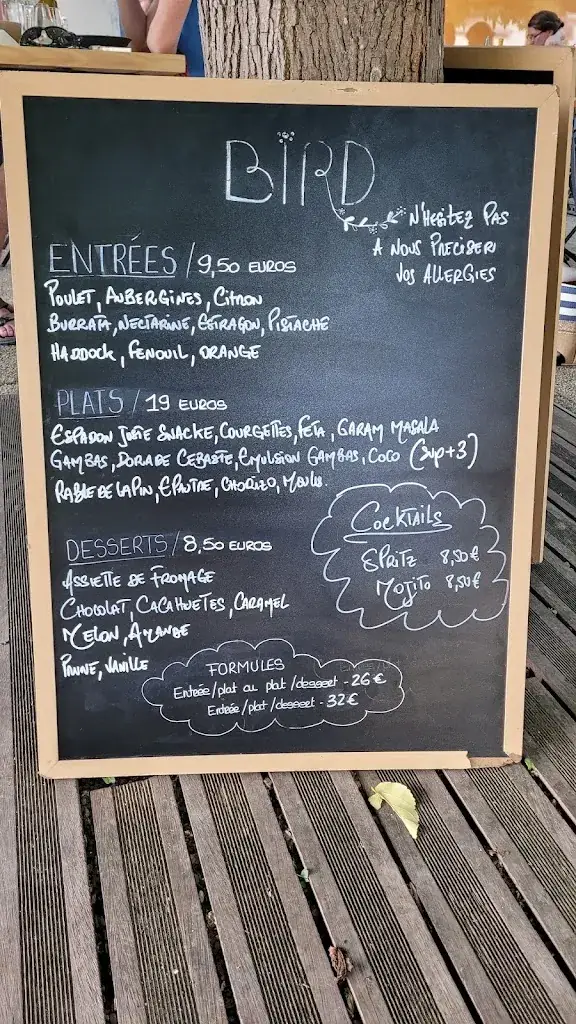 BIRD
N'HESITEZ PAS
A NOUS PRECISER
VOS ALLERGIES
ENTRÉES / 9,50 EUROS
POULET, AUBERGINES, CITRON
BURRATA, NECTARINE, ESTRAGON, PISTACHE
HADDOCK, FENOUIL, ORANGE
PLATS / 19 EUROS
ESPADON JUSTE SNACKE, COURGETTES, FETA, GARAM MASALA
GAMBAS, DORADE CEBASTE, EMULSION GAMBAS, COCO (SUP+3)
RABLE DE LAPIN, EPAUTRE, CHORIZO, MOULES.
COCKTAILS
SPRITZ 8,50€
MOJITO 8,50€
DESSERTS / 8,50 EUROS
ASSIETTE DE FROMAGE
CHOCOLAT, CACAHUETES, CARAMEL
MELON, AMANDE
PRUNE, VANILLE
FORMULES
Entrée/plat ou plat/dessert - 26€
Entrée/plat/dessert - 32€